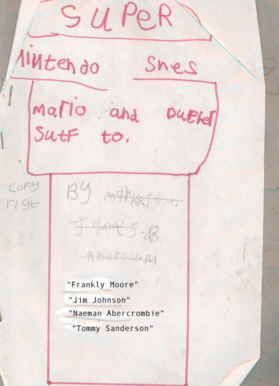 SUPER
Nintendo Snes
mario and
SutF to.
Copy
right
BY
"Frankly Moore"
"Jim Johnson"
"Naeman Abercrombie"
"Tommy Sanderson"